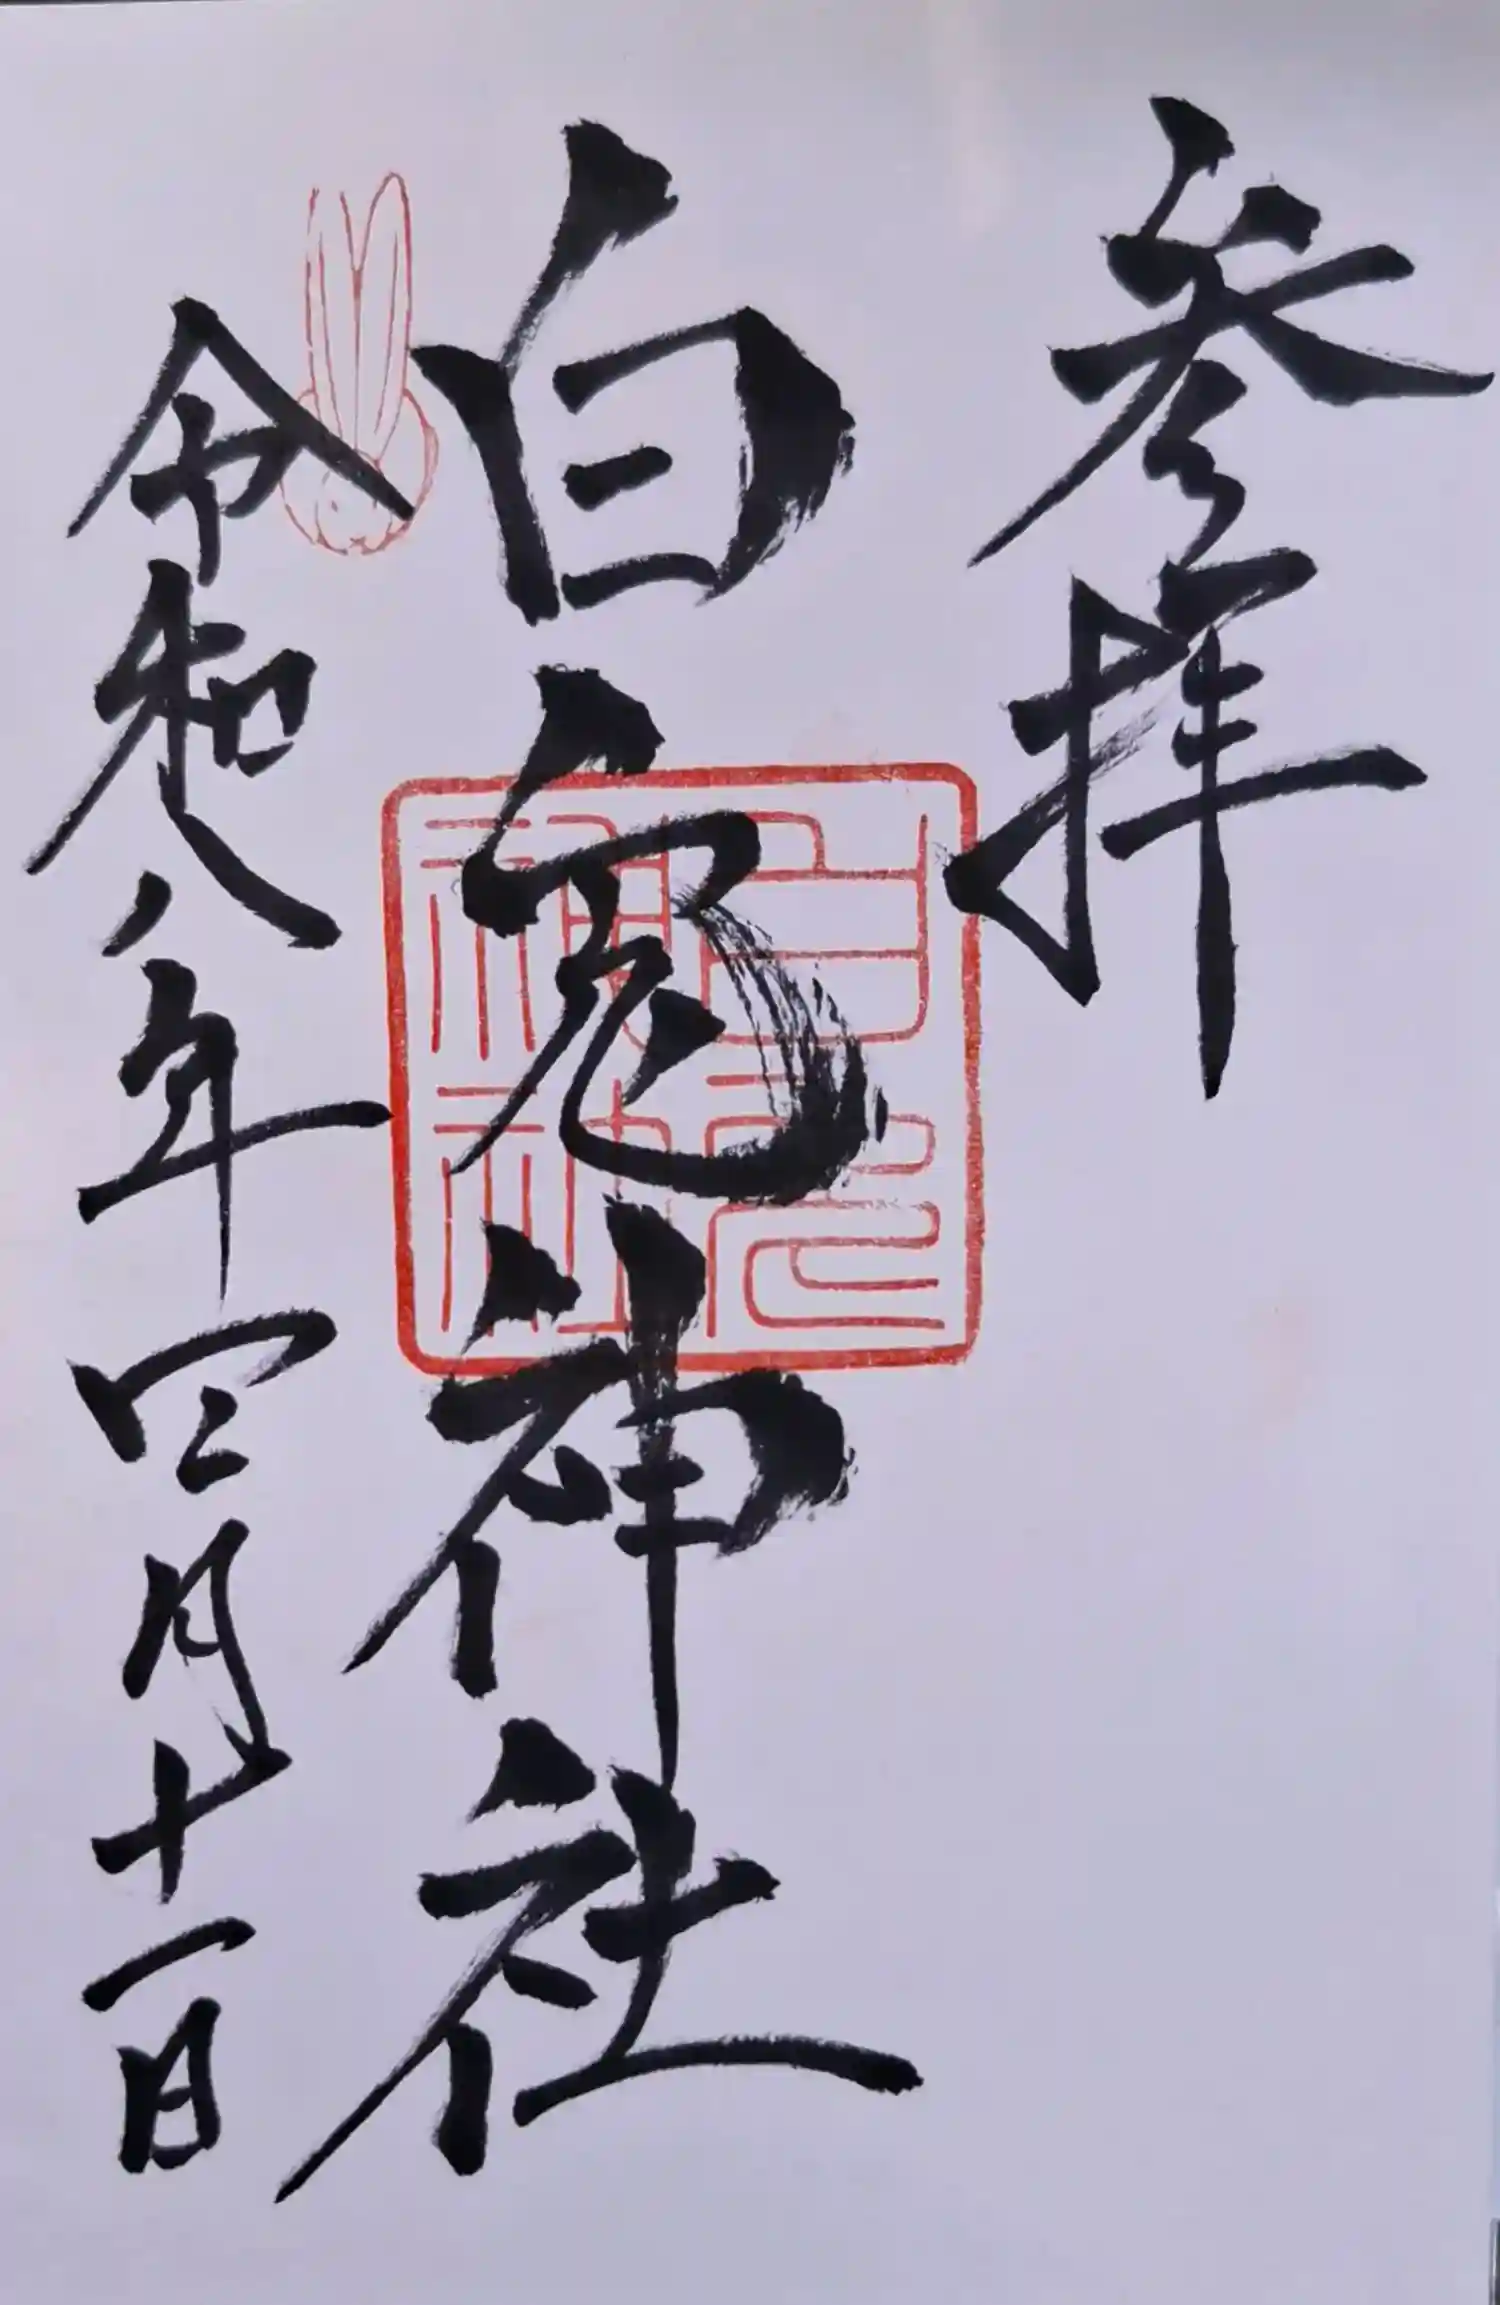 参拝
白兎神社
令和八年四月十一日
白兎神社